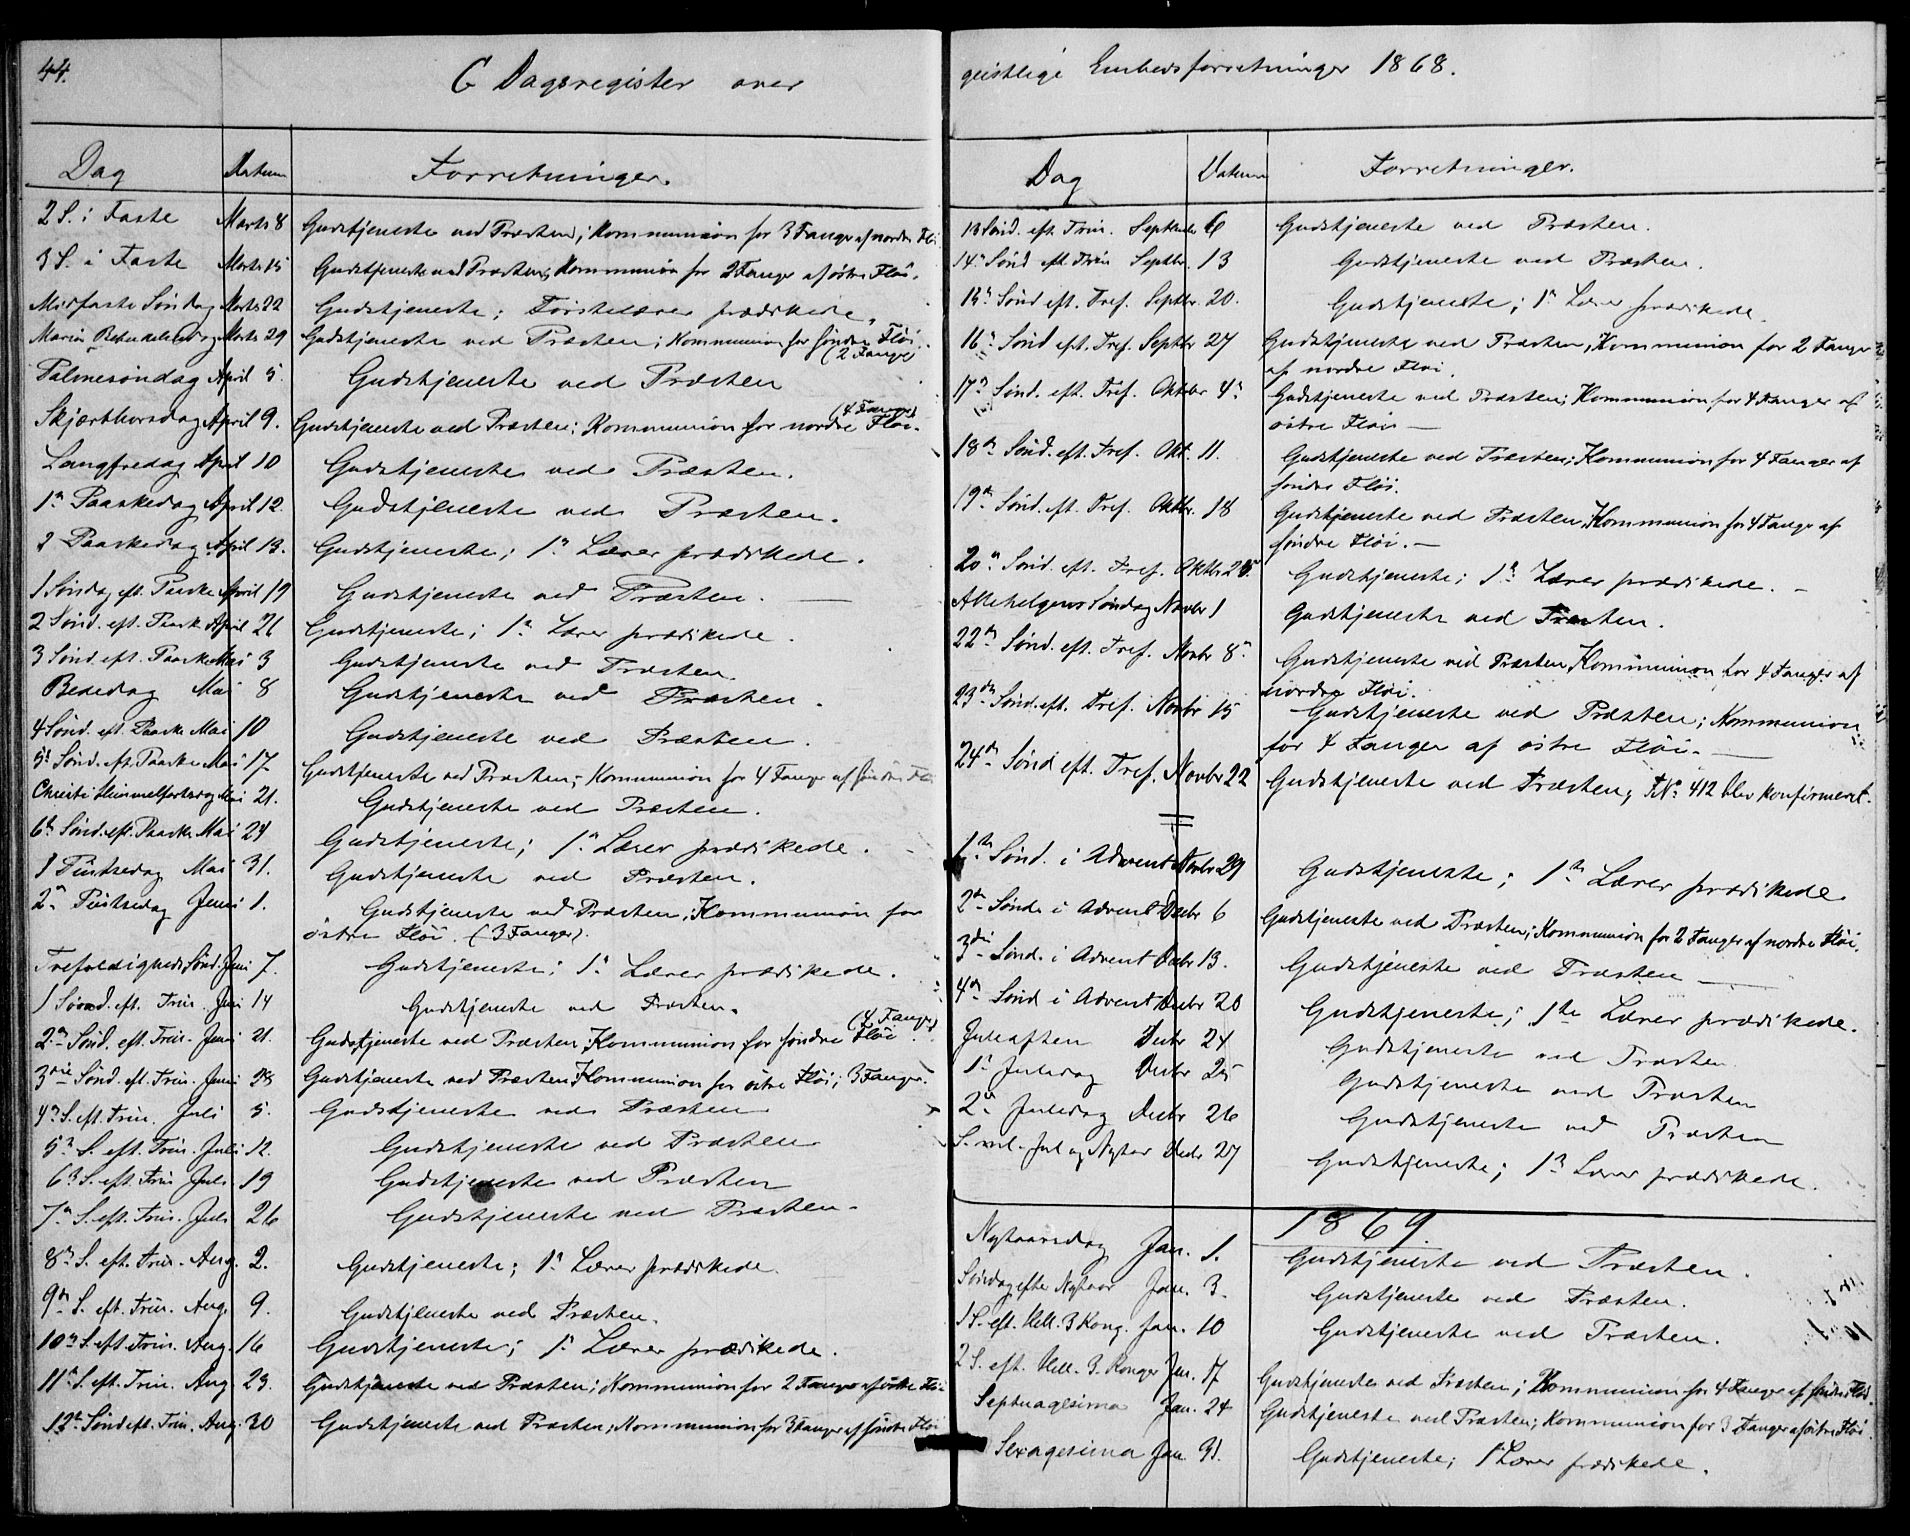 44.
C Dagsregister over
Dag Datum Forretninger.
2 S. i Faste Marts 8 Gudstjeneste ved Præsten; Kommunion for 3 Fanger af nordre Fløi
3 S. i Faste Marts 15 Gudstjeneste ved Præsten; Kommunion for 2 Fanger af østre Fløi.
Midfaste Søndag Marts 22 Gudstjeneste; Førstelærer prædikede.
Mariæ Bebudelsesdag Marts 29 Gudstjeneste ved Præsten; Kommunion for søndre Fløi.
(2 Fange)
Palmesøndag April 5. Gudstjeneste ved Præsten
(4 Fanger)
Skjærthorsdag April 9. Gudstjeneste ved Præsten; Kommunion for nordre Fløi.
Langfredag April 10 Gudstjeneste ved Præsten.
1n Paaskedag April 12. Gudstjeneste ved Præsten.
2 Paaskedag April 13. Gudstjeneste; 1n Lærer prædikede.
1 Søndag eft. Paaske April 19 Gudstjeneste ved Præsten. —
2 Sønd. eft. Paask April 26 Gudstjeneste; 1n Lærer prædikede.
3 Sønd. eft. Paaske Mai 3 Gudstjeneste ved Præsten.
Bededag Mai 8 Gudstjeneste ved Præsten.
4 Sønd. eft. Paaske Mai 10 Gudstjeneste ved Præsten.
5t Sønd. eft. Paaske Mai 17. Gudstjeneste ved Præsten; Kommunion for 4 Fanger af søndre Flø
Christi Himmelfartsdag Mai 21. Gudstjeneste ved Præsten.
6te Sønd. eft. Paaske Mai 24 Gudstjeneste; 1n Lærer prædikede.
1 Pintsedag Mai 31. Gudstjeneste ved Præsten.
2n Pintsedag Juni 1. Gudstjeneste ved Præsten; Kommunion for
østre Fløi. (3 Fanger).
Trefoldigheds Sønd. Juni 7. Gudstjeneste; 1n Lærer prædikede.
1 Sønd. eft. Trin. Juni 14 Gudstjeneste ved Præsten.
(4 Fanger)
2n Sønd. eft. Trin. Juni 21. Gudstjeneste ved Præsten; Kommunion for søndre Fløi.
3die Sønd. eft. Trin. Juni 28 Gudstjeneste ved Præsten; Kommunion for østre Fløi; 3 Fanger.
4n S. eft. Trin. Juli 5. Gudstjeneste ved Præsten
5n S. eft. Trin. Juli 12. Gudstjeneste ved Præsten
6n S. eft. Trin Juli 19 Gudstjeneste ved Præsten
7n S. eft. Trin. Juli 26 Gudstjeneste ved Præsten.
8n S. eft. Trin. Aug. 2. Gudstjeneste; 1n Lærer prædikede.
9n S. eft. Trin. Aug. 9. Gudstjeneste ved Præsten.
10n S. eft. Trin. Aug. 16 Gudstjeneste; 1n Lærer prædikede.
11n S. eft. Trin. Aug. 23. Gudstjeneste ved Præsten; Kommunion for 2 Fanger af østre Flø
12n Sønd eft. Trin. Aug. 30 Gudstjeneste ved Præsten; Kommunion for 3 Fanger af søndre Fløi
geistlige Embedsforretninger 1868.
Dag Datum Forretninger.
13 Sønd. eft. Trin. Septbr. 6 Gudstjeneste ved Præsten.
14n Sønd eft. Trin Septbr. 13 Gudstjeneste ved Præsten.
15n Sønd eft. Tref. Septbr. 20. Gudstjeneste; 1n Lærer prædikede.
16n Sønd eft. Tref. Septbr 27 Gudstjeneste ved Præsten; Kommunion for 2 Fanger
af nordre Fløi.
17n Sønd. eft. Tref. Oktbr 4n Gudstjeneste ved Præsten; Kommunion for 4 Fanger af
østre Fløi —
18n Sønd. eft. Tref. Okt. 11. Gudstjeneste ved Præsten; Kommunion for 4 Fanger af
søndre Fløi.
19n Sønd. eft. Tref. Oktbr. 18 Gudstjeneste ved Præsten; Kommunion for 4 Fanger af
søndre Fløi. —
20n Sønd. eft. Tref. Oktbr 25. Gudstjeneste; 1n Lærer prædikede. —
Allehelgens Søndag Novbr 1 Gudstjeneste ved Præsten.
22n Sønd. eft. Tref. Novbr 8n Gudstjeneste ved Præsten; Kommunion for 4 Fanger af
nordre Fløi.
23de Sønd. eft. Tref. Novbr 15 Gudstjeneste ved Præsten; Kommunion
for 4 Fanger af østre Fløi. —
24de Sønd eft. Tref. Novbr 22 Gudstjeneste ved Præsten; F No 412 blev konfirmeret.
1te Sønd. i Advent Novbr 29 Gudstjeneste; 1te Lærer prædikede
2n Sønd. i Advent Decbr 6 Gudstjeneste ved Præsten; Kommunion for 2 Fanger af nordre Fløi.
3die Sønd. i Advent Decbr 13. Gudstjeneste ved Præsten —
4n Sønd i Advent Decbr 20 Gudstjeneste; 1te Lærer prædikede.
Juleaften Decbr 24 Gudstjeneste ved Præsten
1n Juledag Decbr 25 Gudstjeneste ved Præsten
2n Juledag Decbr 26 Gudstjeneste ved Præsten
S. ml. Jul og Nytaar Decbr 27 Gudstjeneste; 1n Lærer prædikede.
1869.
Nytaarsdag Jan. 1. Gudstjeneste ved Præsten.
Søndag efter Nytaar Jan. 3. Gudstjeneste ved Præsten.
1 S. eft. Hell. 3 Kong. Jan. 10 Gudstjeneste ved Præsten.
2 S. eft. Hell. 3. Konger Jan. 17 Gudstjeneste ved Præsten; Kommunion for 4 Fanger af søndre Fløi.
Septuagesima Jan. 24 Gudstjeneste ved Præsten; Kommunion for 3 Fanger af østre Fløi.
Sexagesima Jan. 31. Gudstjeneste; 1n Lærer prædikede.